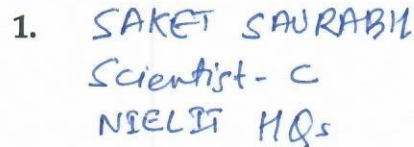 1. SAKET SAURABH
Scientist - C
NIELIT HQs